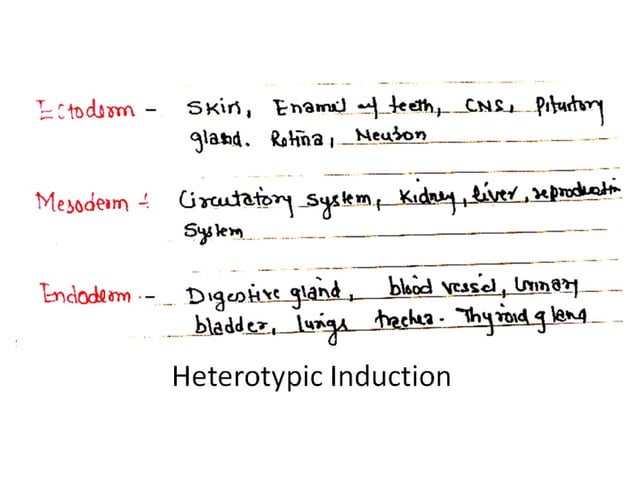 Ectoderm - Skin, Enamel of teeth, CNS, Pituitory
gland. Retina, Neuron
Mesoderm :- Circutatory system, Kidney, liver, reproductive
System
Endoderm :- Digestive gland, blood vessel, Urinary
bladder, lungs trachea. Thyroid gland
Heterotypic Induction